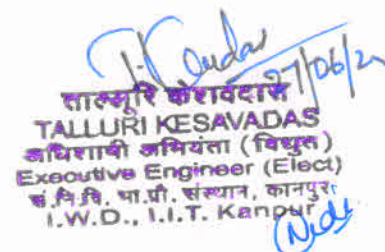 27/06/2
तालूरि केशवदास
TALLURI KESAVADAS
अधिशाषी अभियंता (विधुत)
Executive Engineer (Elect)
सं.नि.वि. भा.प्रौ. संस्थान, कानपुर
I.W.D., I.I.T. Kanpur